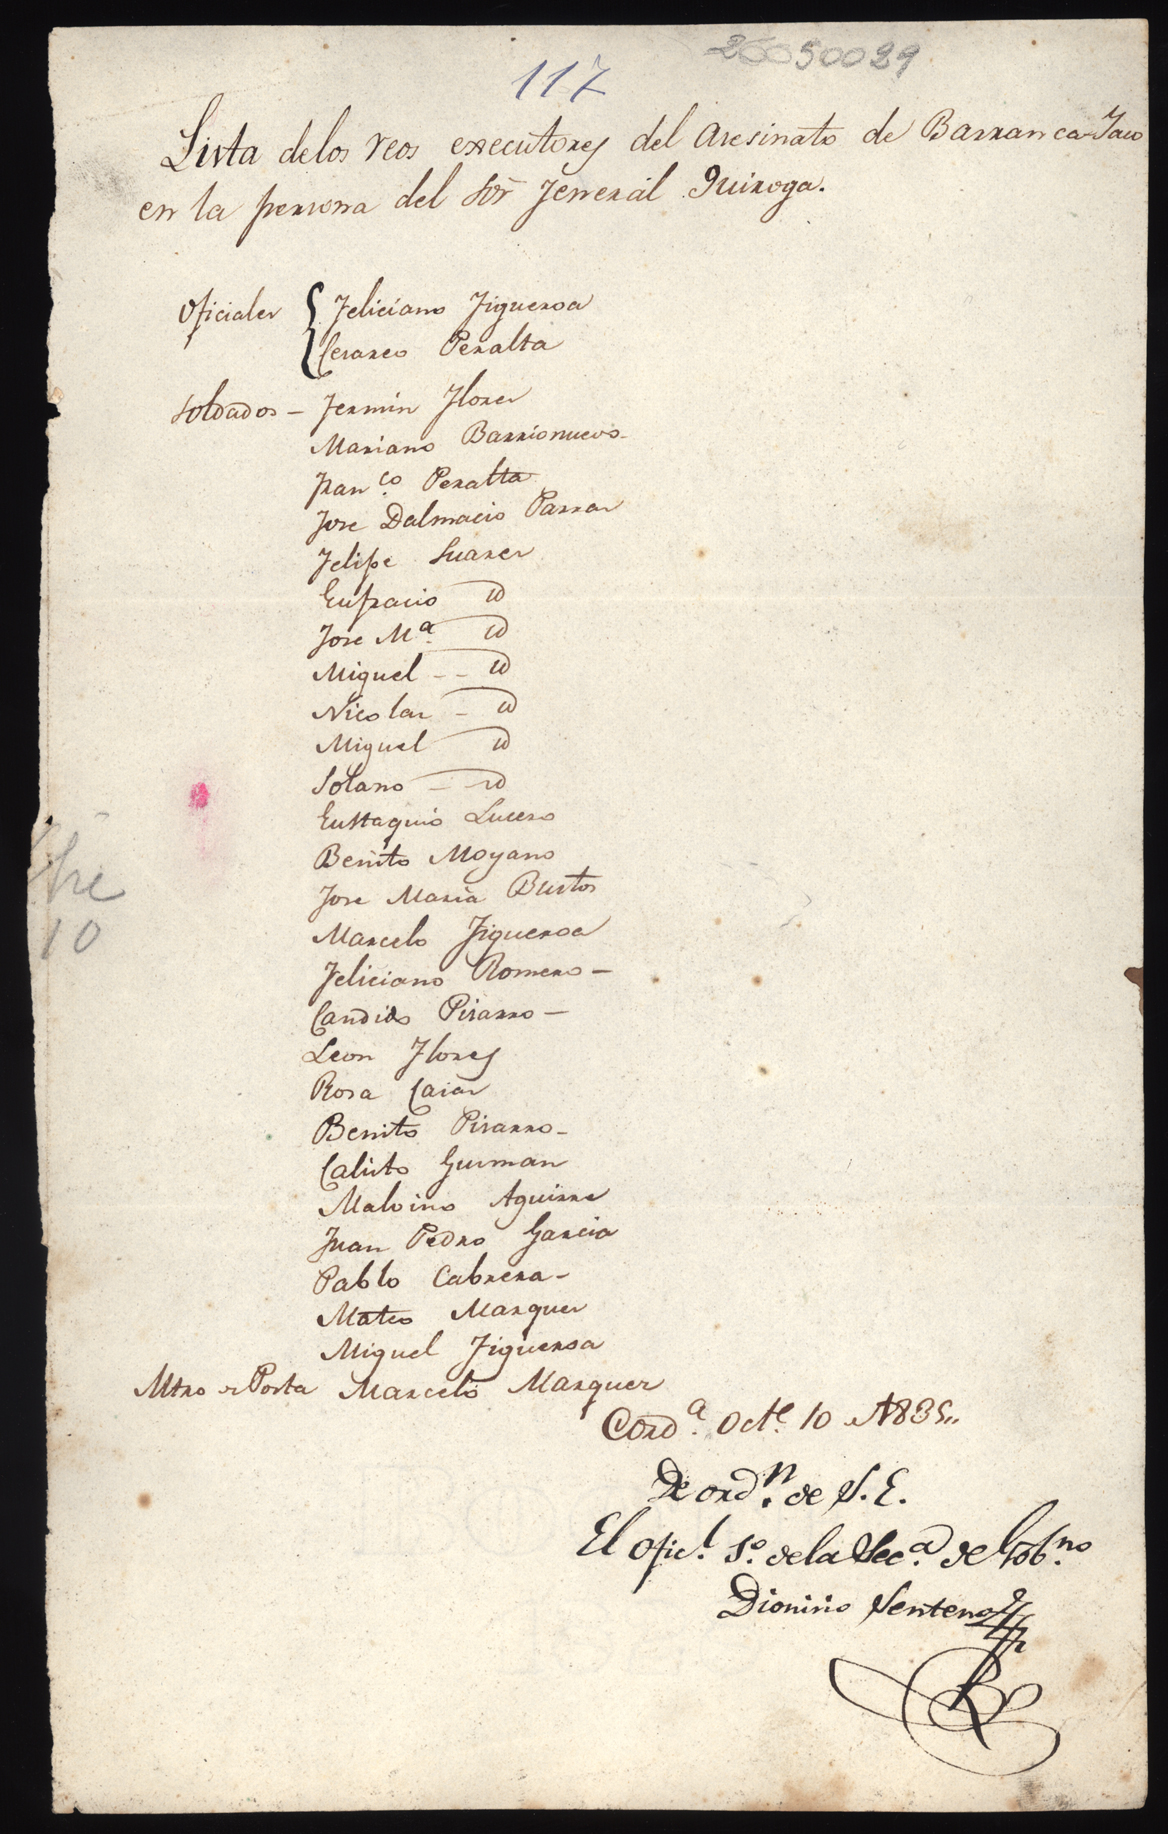 26050029
117
Lista delos reos executores del Asesinato de Barranca-Yaco
en la persona del Sor Jeneral Quiroga.
Oficiales { Feliciano Figueroa
Cesareo Peralta
Soldados - Fermin Flores
Mariano Barrionuevo -
Franco. Peralta
Jose Dalmacio Parras
Felipe Suares
Eufracio id
Jose Ma. id
Miguel - - id
Nicolas - id
Miguel id
Solano - id
Eustaquio Lucero
Benito Moyano
Jose Maria Bustos
Marcelo Figueroa
Feliciano Romero -
Candido Pisarro -
Leon Flores
Rosa Casas
Benito Pisarro -
Calisto Gusman
Malvino Aguirre
Juan Pedro Garcia
Pablo Cabrera -
Mateo Marques
Miguel Figueroa
Mtro de Posta Marcelo Marques
bre
10
Corda. Octe. 10 de 1835,,
De ordn. de S. E.
El oficl. 1o. de la Seca. del Gobno.
Dionisio Senteno